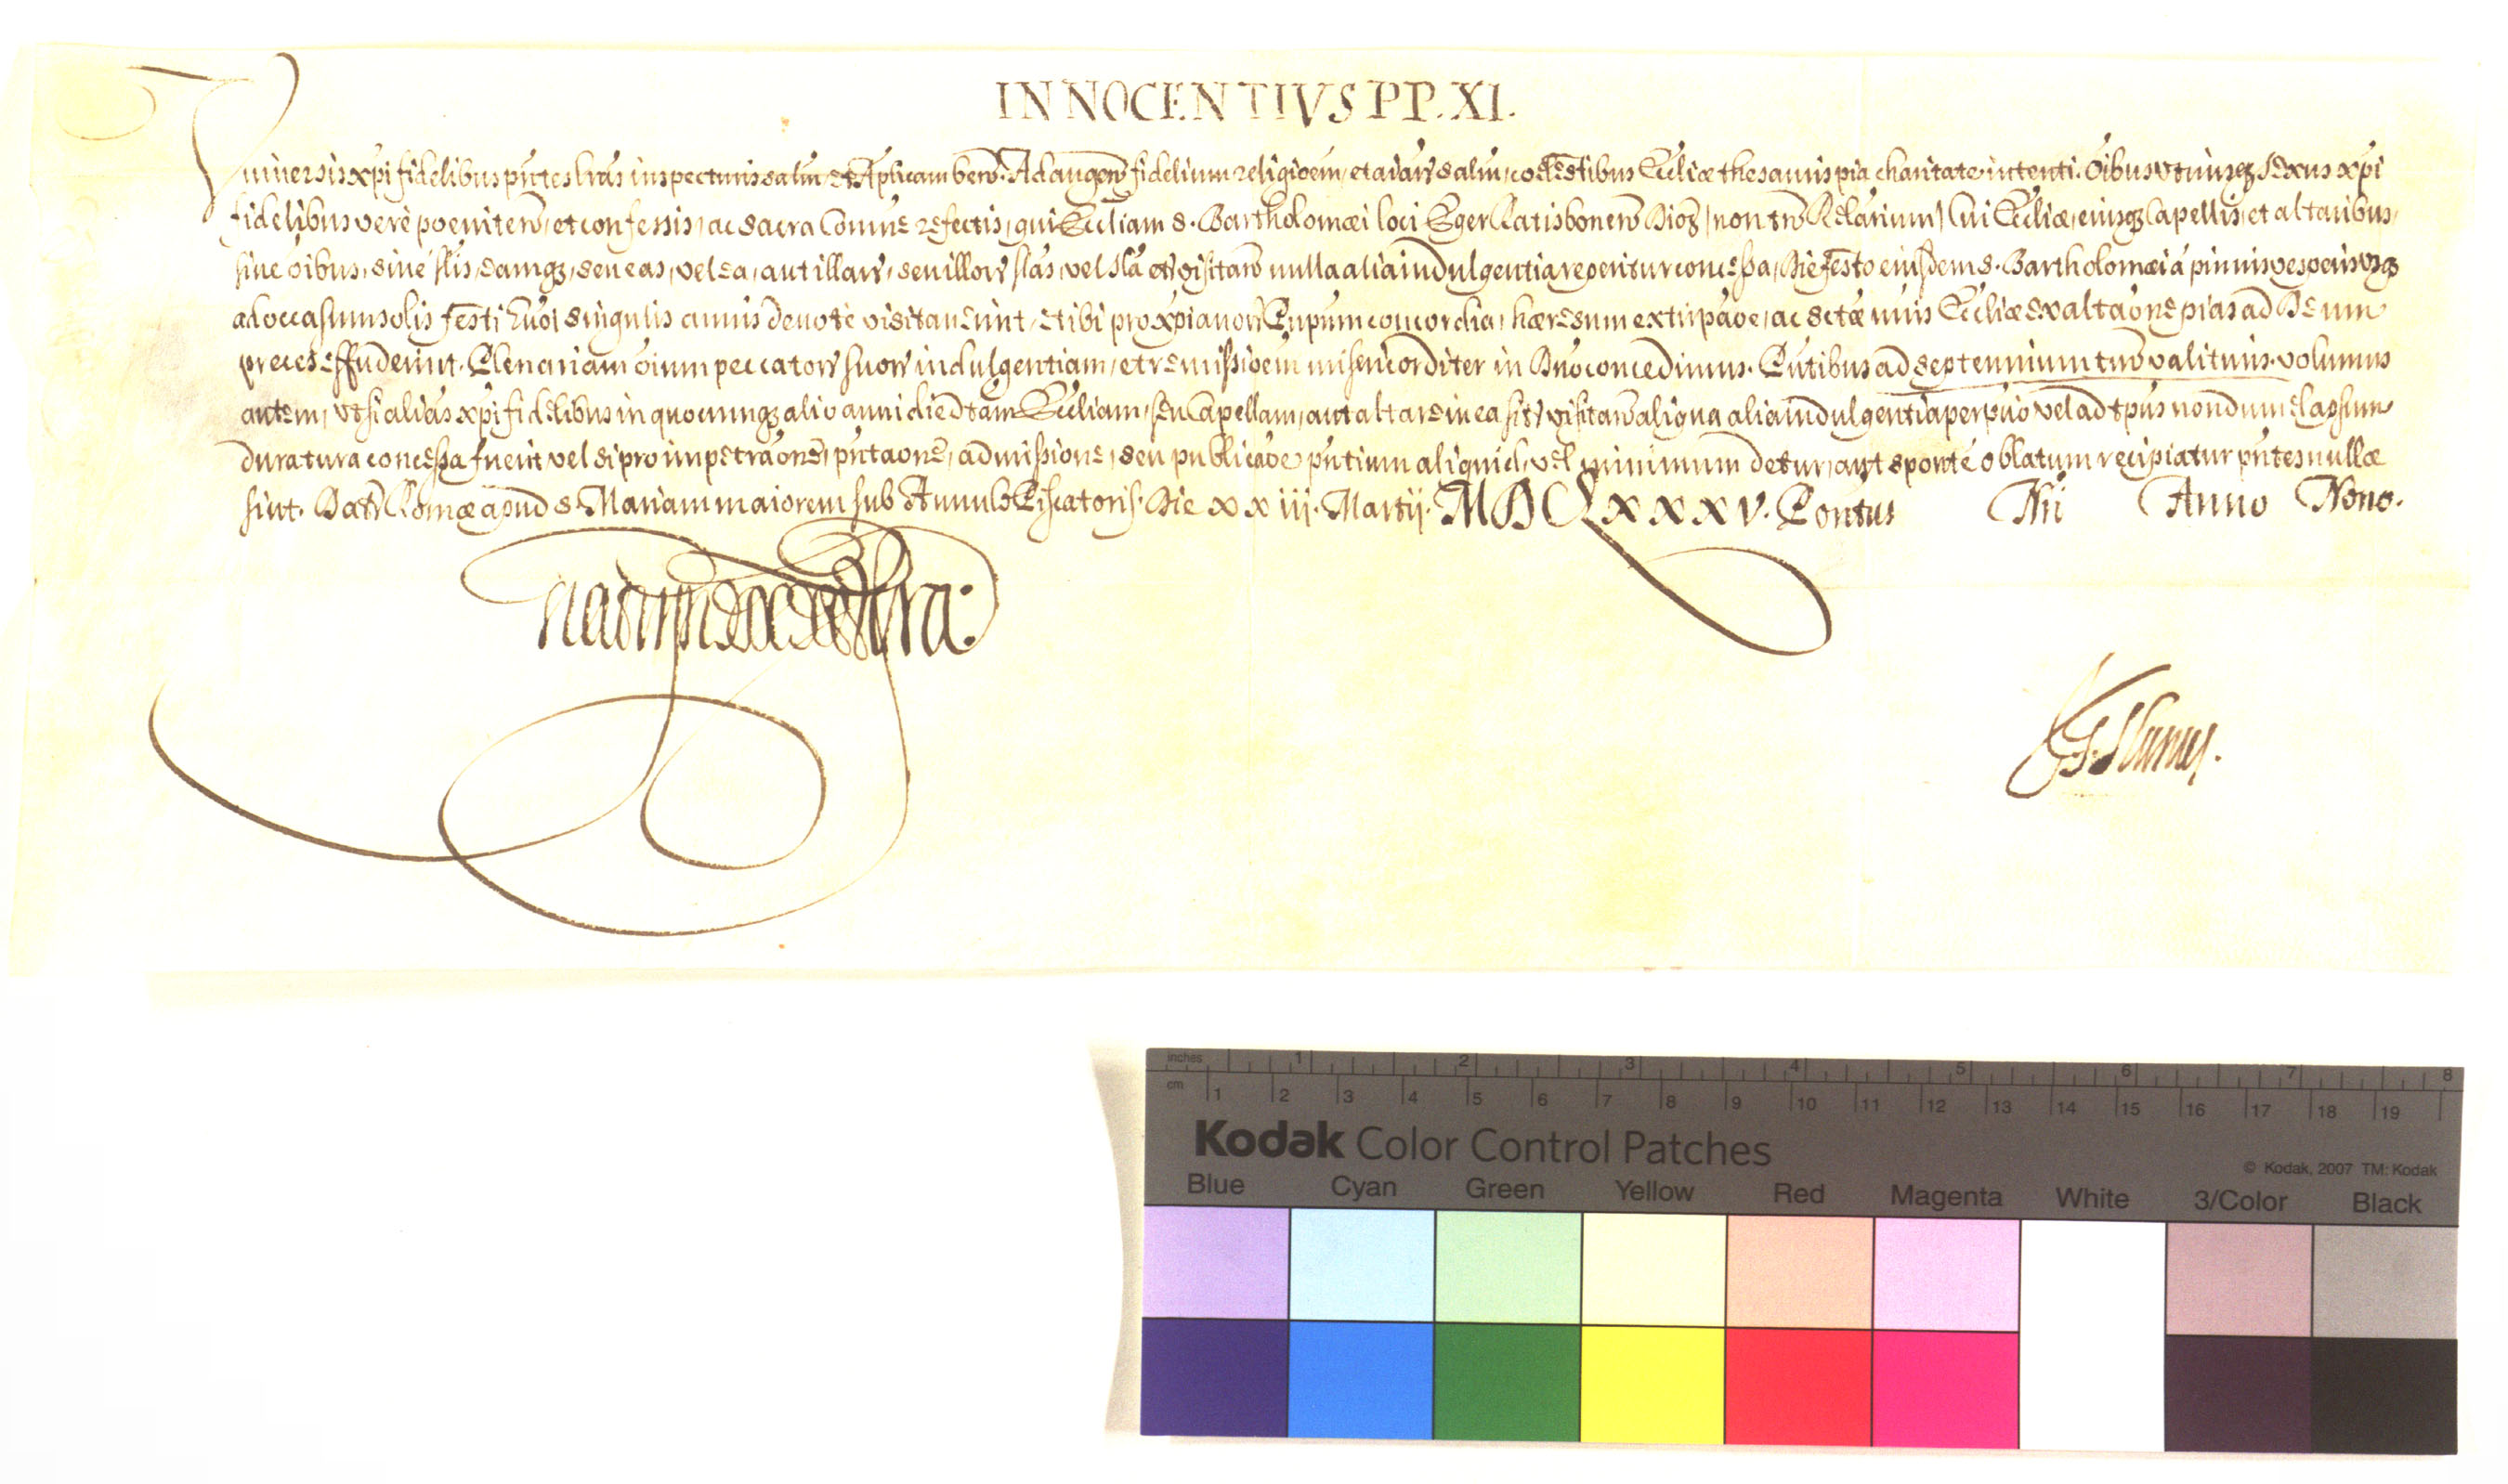 INNOCENTIVS PP. XI.
Vniversis xpi fidelibus pñtes lras inspecturis salm et Aplicam ben. Ad augen fidelium religioem, et aiar salm, coelestibus Ecclie thesauris pia charitate intenti. Oibus utriusq3 sexus xpi
fidelibus verè poeniten, et confessis, ac sacra Comune refectis, qui Eccliam S. Bartholomæi loci Eger Ratisbonen Dioc, non tn Regularium, Cui Ecclie, eiusq3 Capellis, et altaribus,
sive oibus, sive slis, eamq3, seu eas, vel ea, aut illar, seu illor slas, vel sla et visitan nulla alia indulgentia reperitur concessa, Die festo eiusdem S. Bartholomæi à primis vesperis usq3
ad occasum solis festi huiõi singulis annis devotè visitaverint, et ibi pro xpianor Prpum concordia, hæresum extirpaoe, ac sctæ mris Ecclie exaltaone pias ad Deum
preces effuderint. Plenariam oium peccator suor indulgentiam, et remissioem misericorditer in Dno concedimus. Pntibus ad septennium tm valituris. Volumus
autem, ut si alias xpi fidelibus in quocunq3 alio anni die dtam Eccliam, seu Capellam, aut altare in ea sit visitan aliqua alia indulgentia perpuo vel ad tpus nondum elapsum
duratura concessa fuerit vel si pro impetraone, pntaone, admissione, seu publicaoe pntium aliquid, vel minimum detur, aut sponte oblatum recipiatur pntes nullæ
sint. Dat Romæ apud S. Mariam maiorem sub Annulo Piscatoris. Die xxiij. Martij. MDCLxxxv. Pontus Nri Anno Nono.
inches 1 2 3 4 5 6 7 8
cm 1 2 3 4 5 6 7 8 9 10 11 12 13 14 15 16 17 18 19
Kodak Color Control Patches
© Kodak, 2007 TM: Kodak
Blue Cyan Green Yellow Red Magenta White 3/Color Black